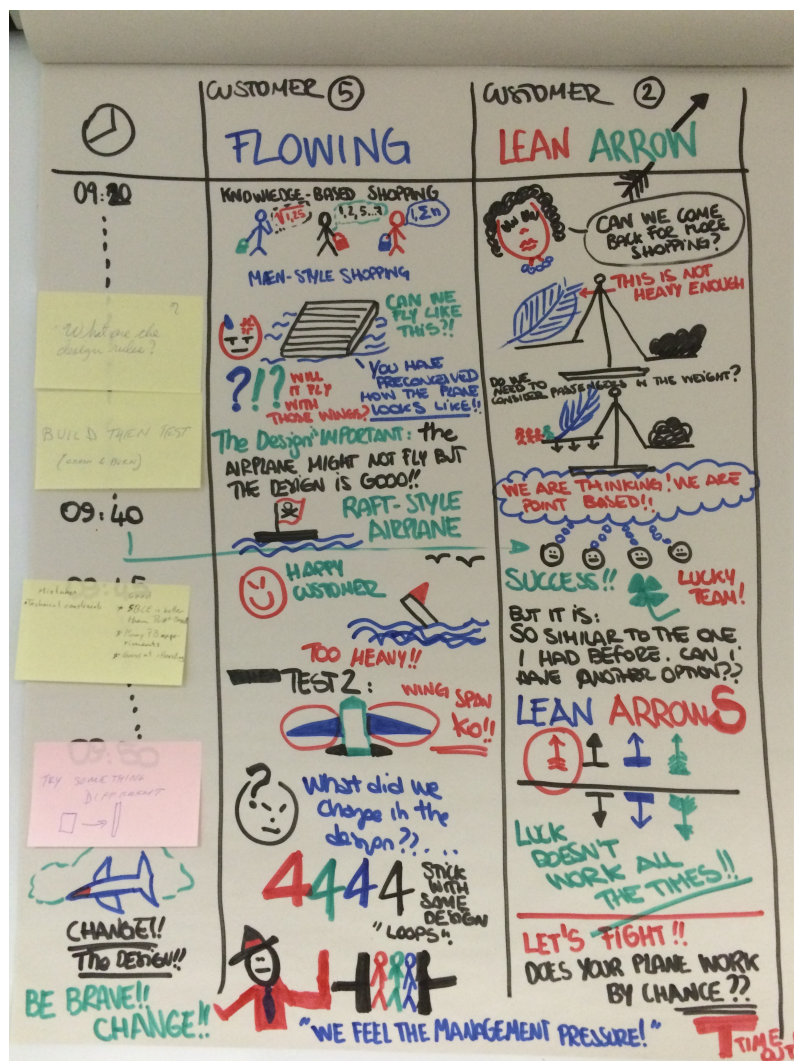 CUSTOMER 5
FLOWING
CUSTOMER 2
LEAN ARROW
09:20
What are the
design rules?
BUILD THEN TEST
09:40
09:45
Mistakes
09:50
TRY SOMETHING
DIFFERENT
CHANGE!!
The DESIGN!!
BE BRAVE!!
CHANGE!!
KNOWLEDGE-BASED SHOPPING
√1,25
1, 2, 5...
1, Σn
MÆN-STYLE SHOPPING
CAN WE
FLY LIKE
THIS?!
?!?
WILL
IT FLY
WITH
THOSE WINGS?
"YOU HAVE
PRECONCEIVED
HOW THE PLANE
LOOKS LIKE!!
The Design IMPORTANT: the
AIRPLANE MIGHT NOT FLY BUT
THE DESIGN IS GOOD!!
RAFT-STYLE
AIRPLANE
HAPPY
CUSTOMER
TOO HEAVY!!
TEST 2:
WING SPAN
KO!!
?
What did we
change in the
design??...
4 4 4 4
STICK
WITH
SOME
DESIGN
"LOOPS"
"WE FEEL THE MANAGEMENT PRESSURE!"
CAN WE COME
BACK FOR MORE
SHOPPING?
THIS IS NOT
HEAVY ENOUGH
DO WE
NEED TO
CONSIDER PASSENGERS IN THE WEIGHT?
WE ARE THINKING! WE ARE
POINT BASED!!
SUCCESS!!
LUCKY
TEAM!
BUT IT IS:
SO SIMILAR TO THE ONE
I HAD BEFORE. CAN I
HAVE ANOTHER OPTION??
LEAN ARROWS
LUCK
DOESN'T
WORK ALL
THE TIMES!!
LET'S FIGHT!!
DOES YOUR PLANE WORK
BY CHANCE??
TIME
OUT